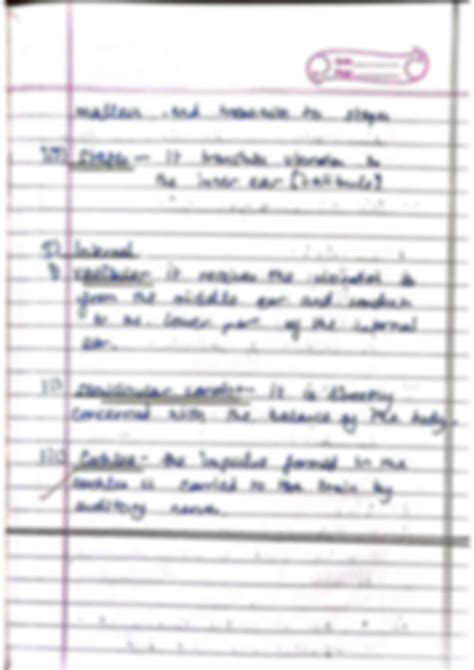 malleus and transmits to stapes
III) Stapes - it transmits vibration to
the inner ear
5) Internal
I) vestibule - it receives the vibration
from the middle ear and conducts
to the lower part of the internal
ear.
II) semicircular canals - it is directly
concerned with the balance of the body.
III) Cochlea - the impulse formed in the
cochlea is carried to the brain by
auditory nerve.